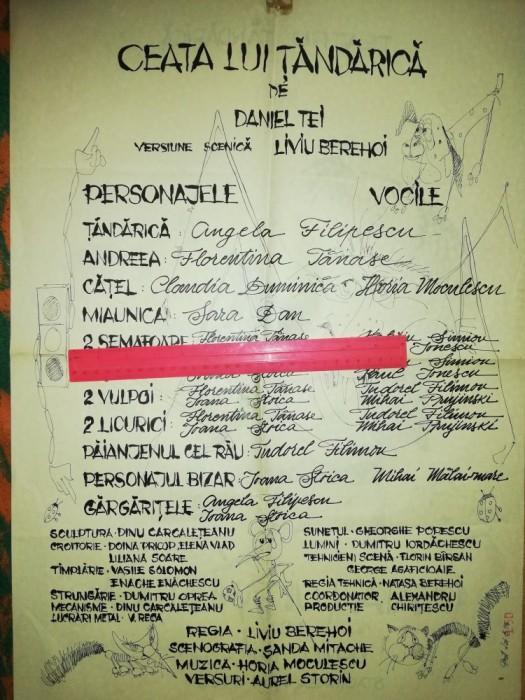 CEATA LUI ȚĂNDĂRICĂ
DE
DANIEL TEI
VERSIUNE SCENICĂ LIVIU BEREHOI
PERSONAJELE VOCILE
ȚĂNDĂRICĂ: Angela Filipescu
ANDREEA: Florentina Tănase
CĂȚEL: Claudia Duminică Horia Moculescu
MIAUNICA: Sara Dan
2 SEMAFOARE: Florentina Tănase Simion
Ionescu
Simion
Ioana Stoica Ionescu
2 VULPOI: Florentina Tănase Tudorel Filimon
Ioana Stoica Mihai Prujinski
2 LICURICI: Florentina Tănase Tudorel Filimon
Ioana Stoica Mihai Prujinski
PĂIANJENUL CEL RĂU: Tudorel Filimon
PERSONAJUL BIZAR: Ioana Stoica Mihai Mălaimare
GĂRGĂRIȚELE: Angela Filipescu
Ioana Stoica
SCULPTURA · DINU CARCALEȚEANU
CROITORIE · DOINA PRICOP, ELENA VLAD
LILIANA SOARE
TÎMPLĂRIE · VASILE SOLOMON
ENACHE ENĂCHESCU
STRUNGĂRIE · DUMITRU OPREA
MECANISME · DINU CARCALEȚEANU
LUCRĂRI METAL · V. RECA
SUNETUL · GHEORGHE POPESCU
LUMINI · DUMITRU IORDĂCHESCU
TEHNICIENI SCENĂ · FLORIN BÎRSAN
GEORGE AGAFICIOAIE
REGIA TEHNICĂ · NATAȘA BEREHOI
COORDONATOR ALEXANDRU
PRODUCȚIE CHIRIȚESCU
REGIA · LIVIU BEREHOI
SCENOGRAFIA · SANDA MITACHE
MUZICA · HORIA MOCULESCU
VERSURI · AUREL STORIN